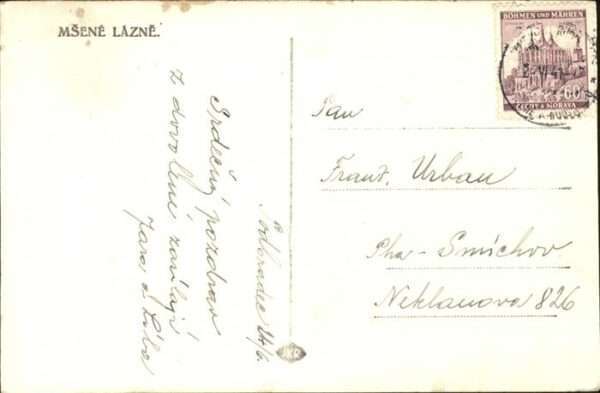 MŠENÉ LÁZNĚ.
BÖHMEN UND MÄHREN
60
ČECHY A MORAVA
Srdečný pozdrav
z dovolené zasílají
Jara a Liba
24/6.
Pan
Frant. Urban
Pha - Smíchov
Neklanova 826